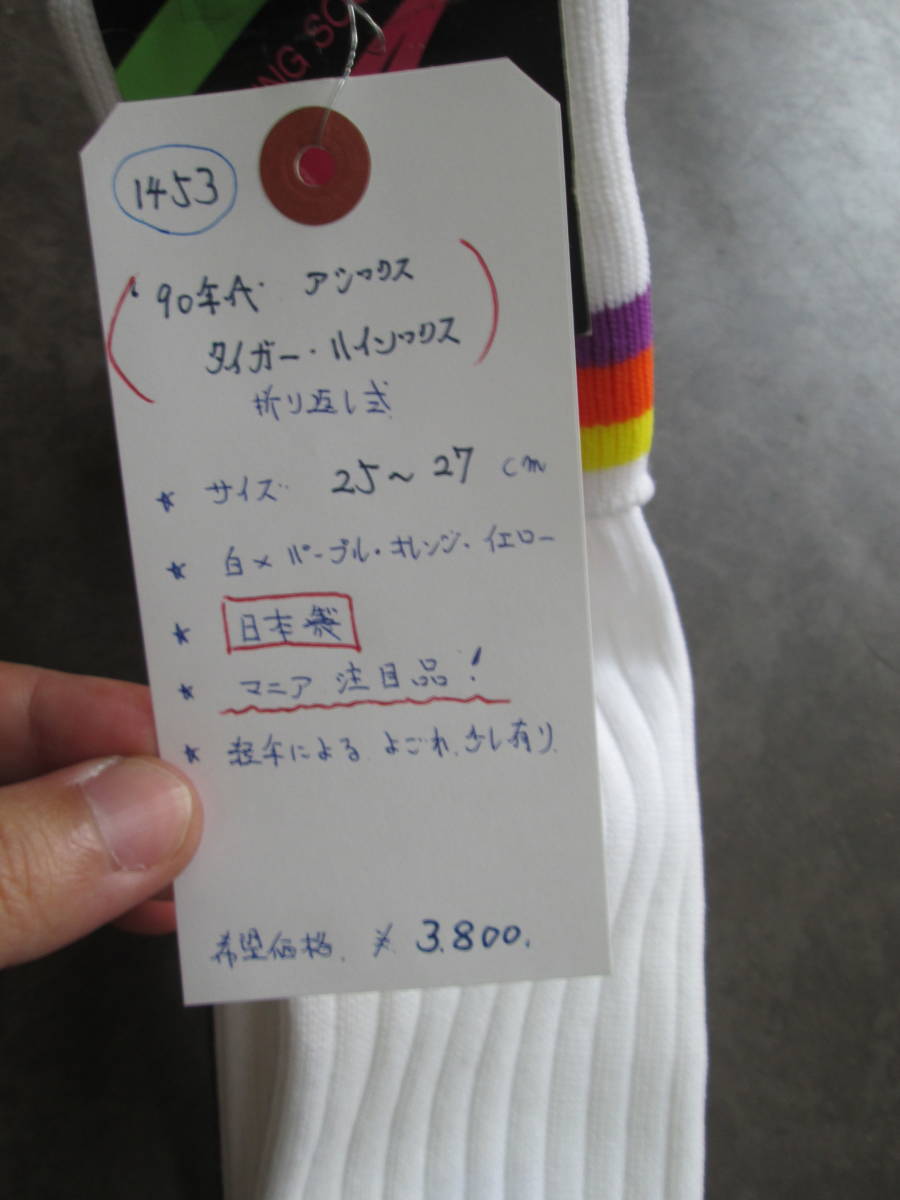 NG SO
1453
'90年代 アシックス
タイガー・ハイソックス
折り返し式
★ サイズ 25~27 cm
★ 白×パープル・オレンジ・イエロー
★ 日本製
★ マニア注目品!
★ 経年による よごれ 少し有り
希望価格 ¥3.800.